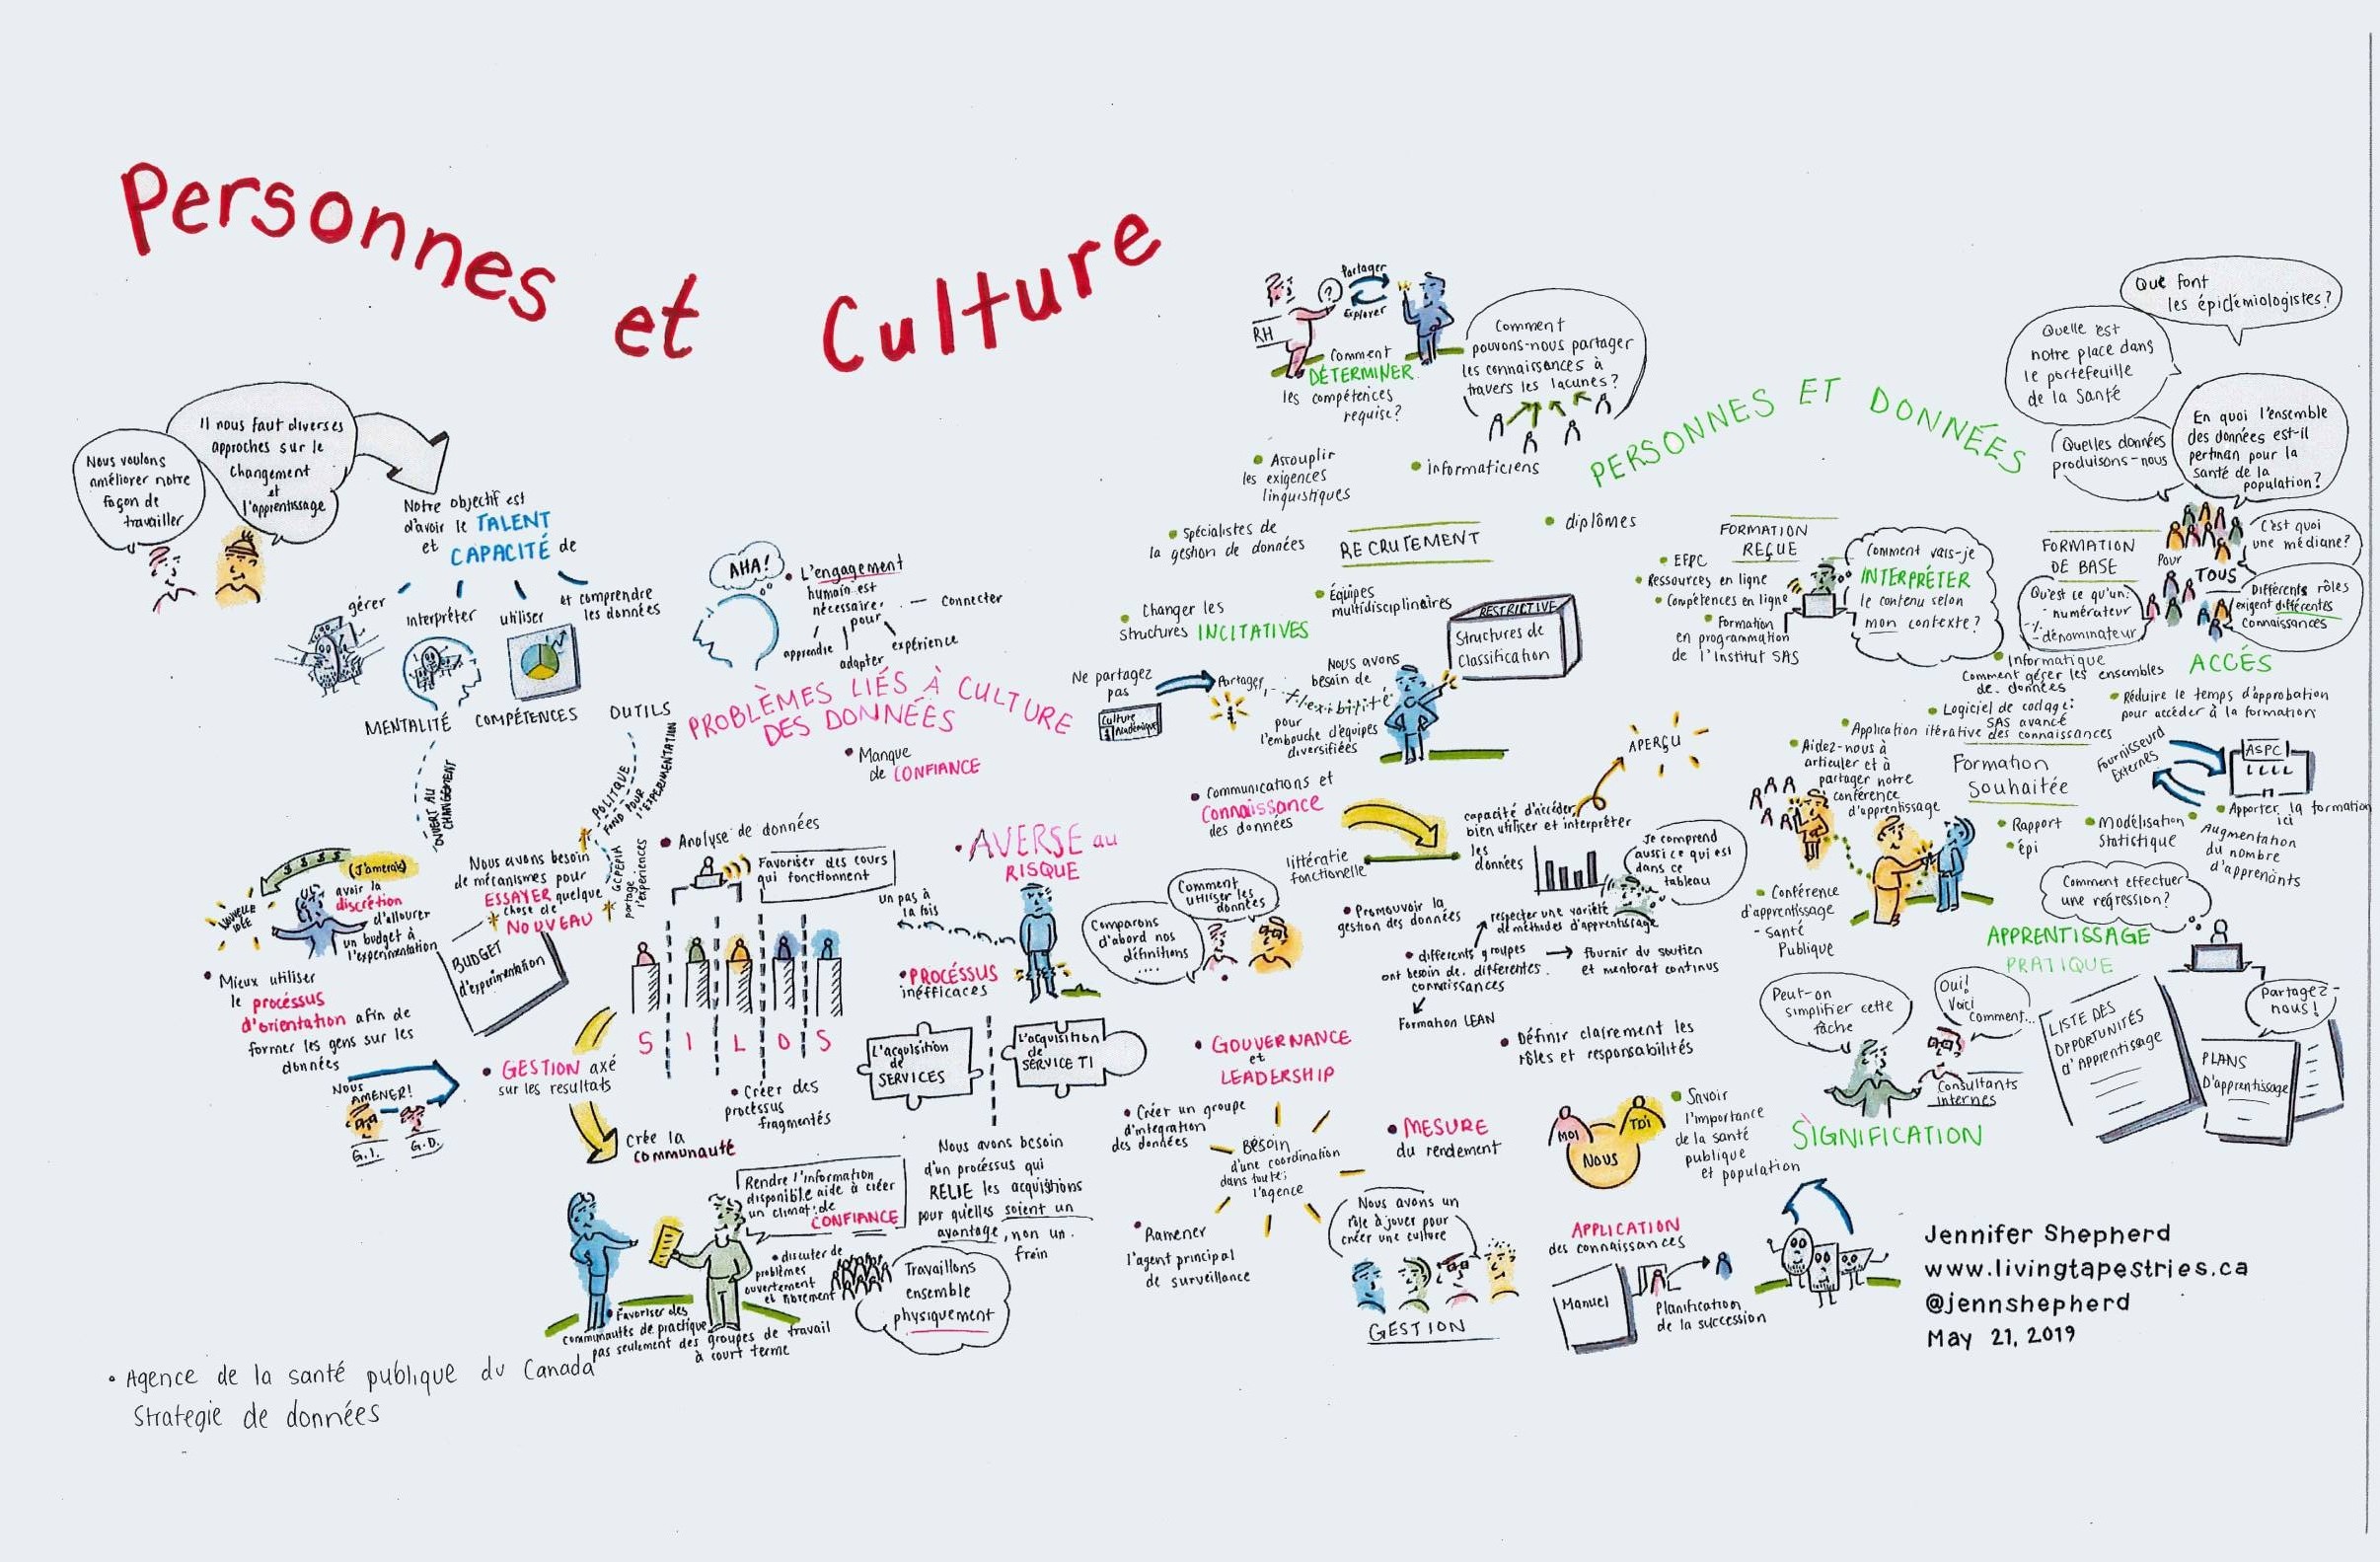 Personnes et Culture
Nous voulons
améliorer notre
façon de
travailler
Il nous faut diverses
approches sur le
changement
et
l'apprentissage
Notre objectif est
d'avoir le TALENT
et CAPACITÉ de
gérer
interpréter
utiliser
et comprendre
les données
MENTALITÉ
COMPÉTENCES
OUTILS
OUVERT AU
CHANGEMENT
POLITIQUE
FOND POUR
L'EXPERIMENTATION
GCPEDIA
partage
l'expériences
$ $ $ $
NOUVELLE
IDÉE
(J'amerais)
avoir la
discrétion
d'allouer
un budget à
l'experimentation
Nous avons besoin
de mécanismes pour
ESSAYER quelque
chose de
NOUVEAU
BUDGET
d'experimentation
• Mieux utiliser
le procéssus
d'orientation afin de
former les gens sur les
données
Nous
AMENER!
G.I.
G.D.
AHA!
• L'engagement
humain est
nécessaire
pour
— Connecter
apprendre
adapter
expérience
PROBLÈMES LIÉS À CULTURE
DES DONNÉES
• Manque
de CONFIANCE
• Analyse de données
Favoriser des cours
qui fonctionnent
S I L O S
• GESTION axé
sur les resultats
• Créer des
processus
fragmentés
Crée la
communauté
Rendre l'information
disponible aide à créer
un climat de
CONFIANCE
• discuter de
problèmes
ouvertement
et librement
• Favoriser des
communautés de practique
pas seulement des groupes de travail
à court terme
Travaillons
ensemble
physiquement
• AVERSE au
RISQUE
un pas à
la fois
• PROCÉSSUS
inefficaces
L'acquisition
de
SERVICES
L'acquisition
de
SERVICE TI
Nous avons besoin
d'un procéssus qui
RELIE les acquisitions
pour qu'elles soient un
avantage, non un
frein
RH
?
Partager
Explorer
Comment
DÉTERMINER
les compétences
requise?
Comment
pouvons-nous partager
les connaissances à
travers les lacunes?
• Assouplir
les exigences
linguistiques
• informaticiens
• Spécialistes de
la gestion de données
RECRUTEMENT
• diplômes
• Changer les
structures INCITATIVES
• Équipes
multidisciplinaires
RESTRICTIVE
Structures de
Classification
Ne partagez
pas
Culture
Académique
Partager
Nous avons
besoin de
flexibilité
pour
l'embouche d'équipes
diversifiées
• Communications et
Connaissance
des données
littératie
fonctionelle
capacité d'accéder,
bien utiliser et interpréter
les
données
APERÇU
Je comprend
aussi ce qui est
dans ce
tableau
Comparons
d'abord nos
définitions
....
Comment
utiliser les
données
• Promouvoir la
gestion des données
respecter une variété
de méthodes d'apprentissage
• différents groupes
ont besoin de differentes
connaissances
fournir du soutien
et mentorat continus
Formation LEAN
• GOUVERNANCE
et
LEADERSHIP
• Définir clairement les
rôles et responsabilités
• Créer un groupe
d'integration
des données
BESOIN
d'une coordination
dans toute
l'agence
• Ramener
l'agent principal
de surveillance
• MESURE
du rendement
Nous avons un
rôle à jouer pour
créer une culture
GESTION
MOI
TOI
NOUS
• Savoir
l'importance
de la santé
publique
et population
APPLICATION
des connaissances
Manuel
Planification
de la succession
PERSONNES ET DONNÉES
FORMATION
REÇUE
• EFPC
• Ressources en ligne
• Compétences en ligne
• Formation
en programmation
de l'Institut SAS
Comment vais-je
INTERPRÉTER
le contenu selon
mon contexte?
Que font
les épidémiologistes?
Quelle est
notre place dans
le portefeuille
de la Santé
Quelles données
produisons-nous
En quoi l'ensemble
des données est-il
pertinan pour la
santé de la
population?
C'est quoi
une médiane?
FORMATION
DE BASE
Pour
TOUS
Qu'est ce qu'un:
- numérateur
- %
- dénominateur
Différents rôles
exigent différentes
connaissances
ACCÉS
• Informatique
Comment gérer les ensembles
de données
• Réduire le temps d'approbation
pour accéder à la formation
• Logiciel de codage:
SAS avancé
• Application itérative des connaissances
• Aidez-nous à
articuler et à
partager notre
conférence
d'apprentissage
Formation
Souhaitée
Fournisseurs
Externes
ASPC
• Apporter la formation
ici
• Rapport
• épi
• Modélisation
Statistique
• Augmentation
du nombre
d'apprenants
• Conférence
d'apprentissage
- Santé
Publique
Comment effectuer
une regression?
APPRENTISSAGE
PRATIQUE
Peut-on
simplifier cette
tâche
Oui!
Voici
Comment...
Consultants
internes
LISTE DES
OPPORTUNITÉS
d'Apprentissage
PLANS
D'apprentissage
Partagez-
nous!
SIGNIFICATION
Jennifer Shepherd
www.livingtapestries.ca
@jennshepherd
May 21, 2019
• Agence de la santé publique du Canada
Strategie de données